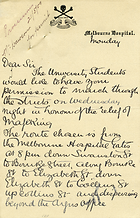 Melbourne Hospital.
Monday
Dear Sir
The University Students
would like to have your
permission to march through
the streets on Wednesday
night in honour of the relief of
Mafeking
The route chosen is from
the Melbourne Hospital gates
at 8 pm down Swanston St
to Bourke Street, along Bourke
St to Elizabeth St down
Elizabeth St to Collins St
up Collins St and dispersing
beyond the Argus Office